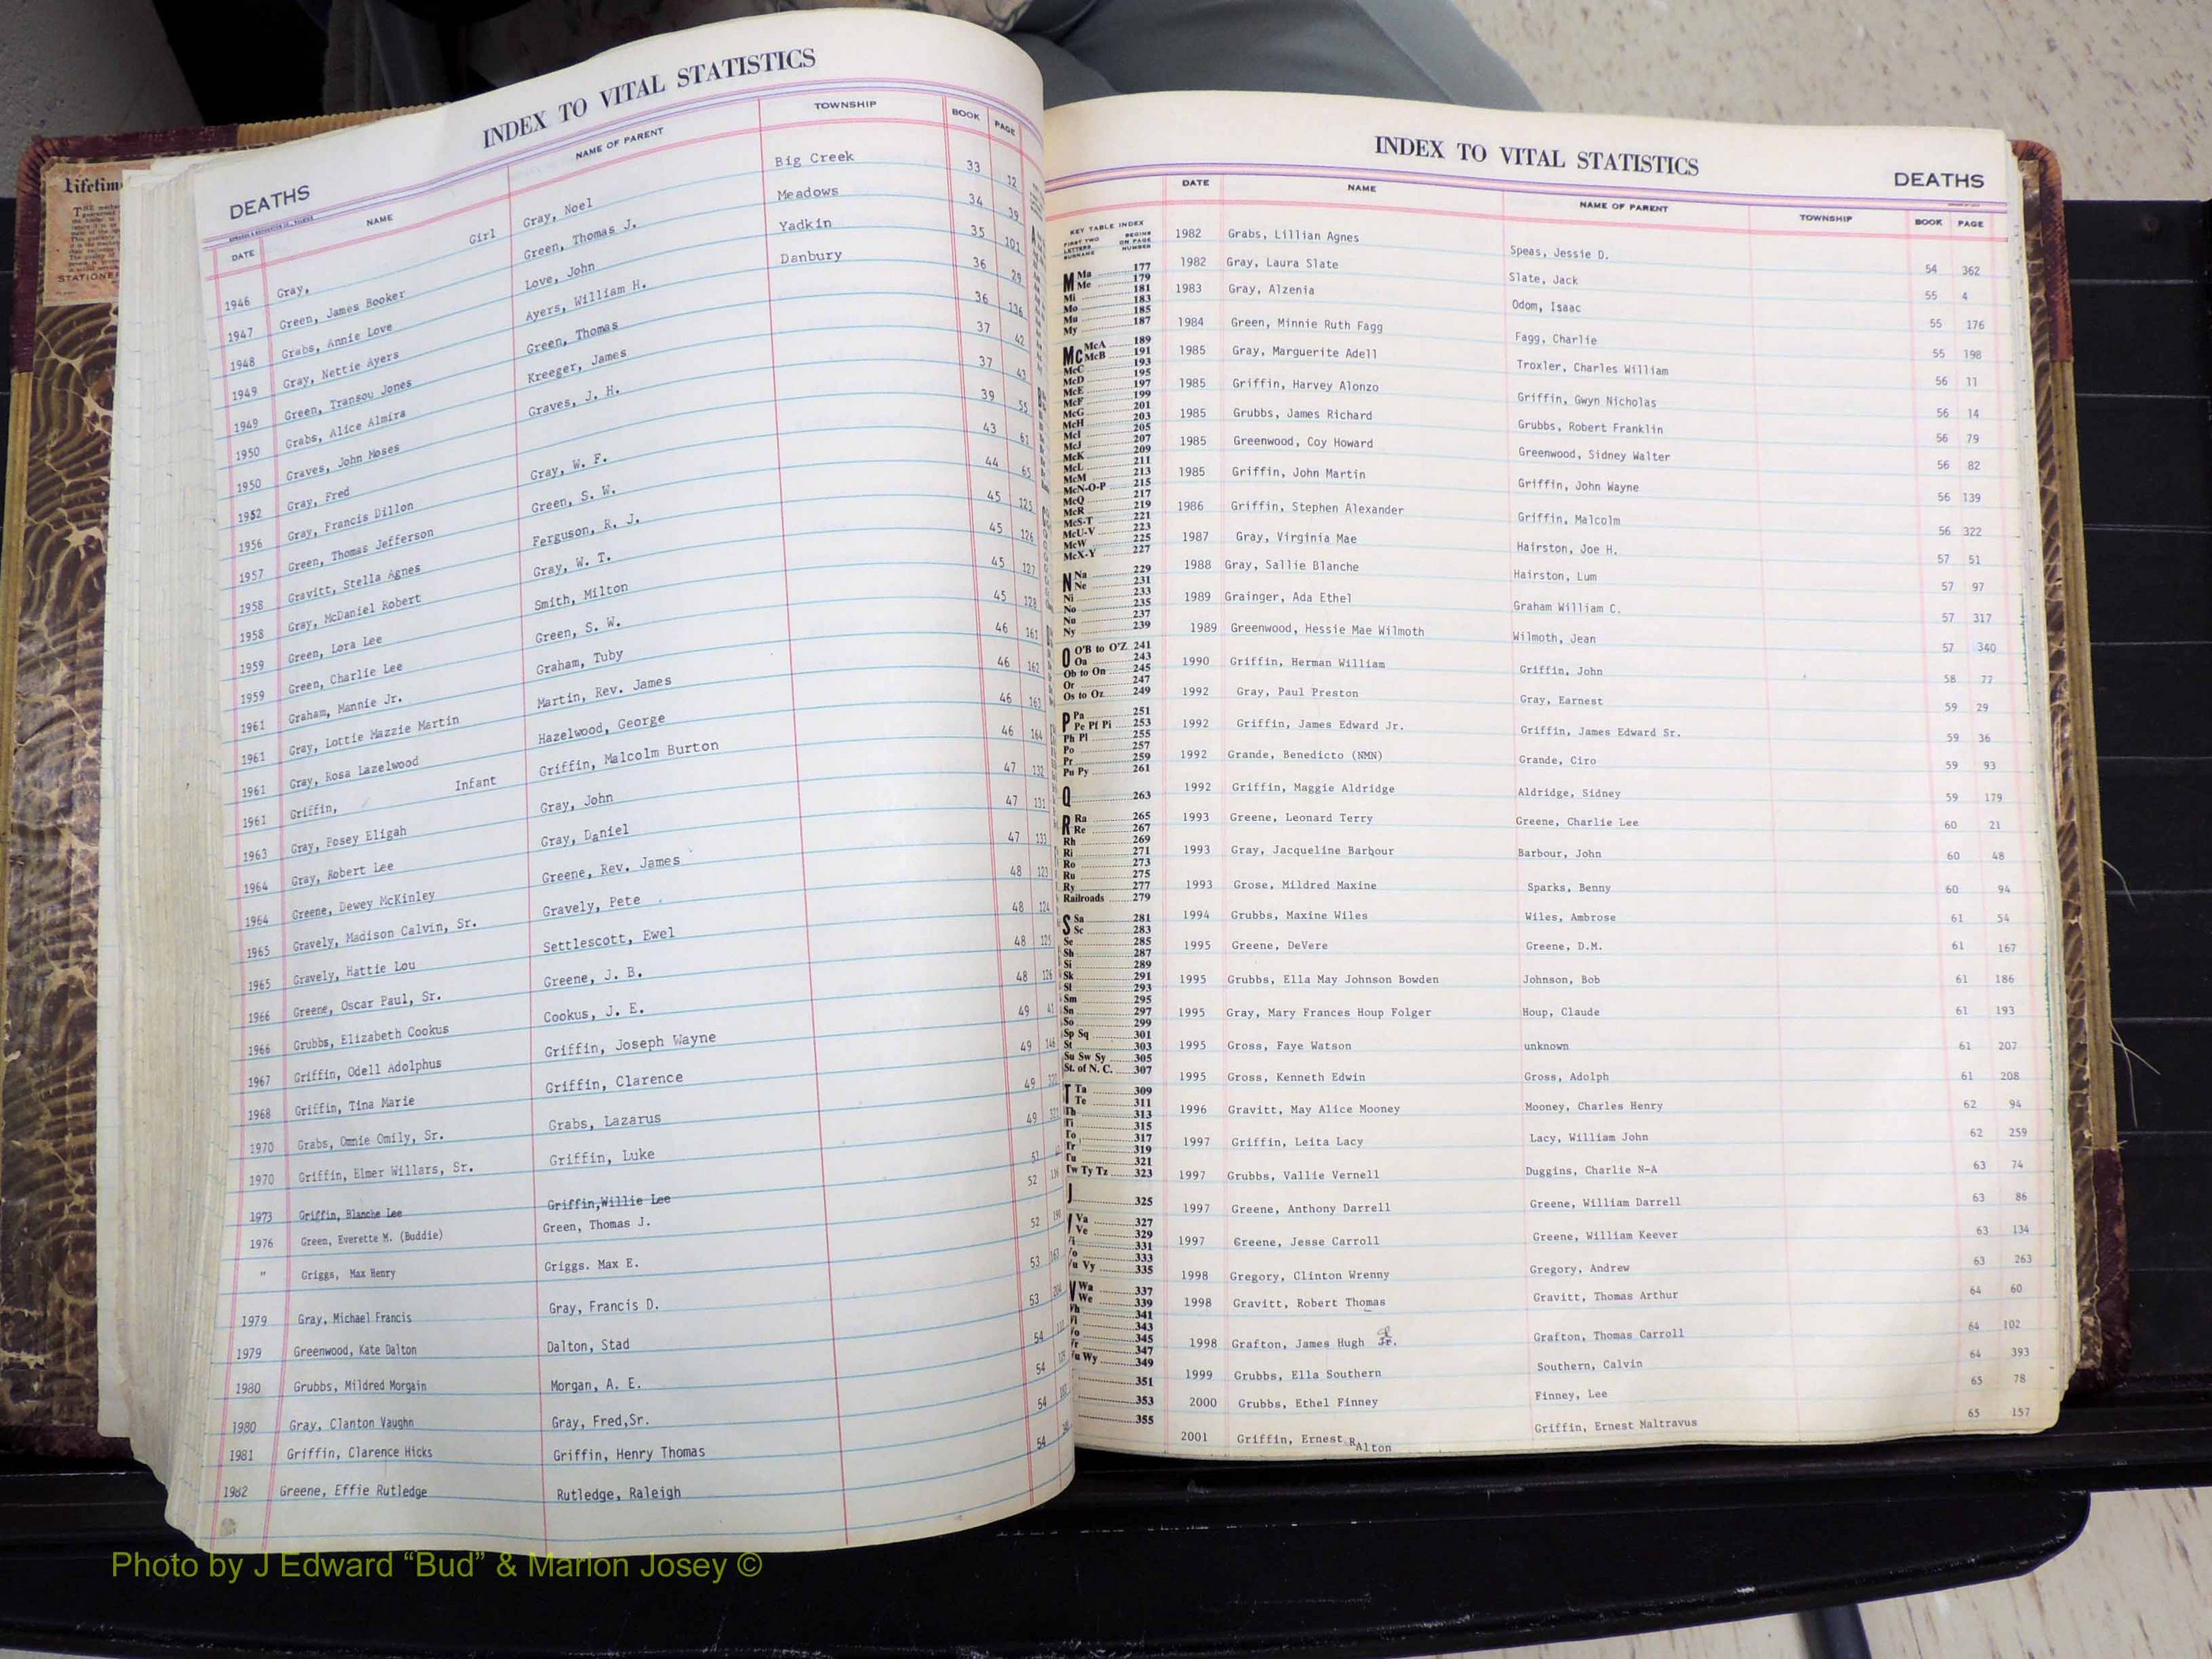 INDEX TO VITAL STATISTICS
DEATHS
DATE NAME NAME OF PARENT TOWNSHIP BOOK PAGE
1946 Gray, Girl Gray, Noel Big Creek 33 12
1947 Green, James Booker Green, Thomas J. Meadows 34 39
1948 Grabs, Annie Love Love, John Yadkin 35 101
1949 Gray, Nettie Ayers Ayers, William H. Danbury 36 29
1949 Green, Transou Jones Green, Thomas 36 136
1950 Grabs, Alice Almira Kreeger, James 37 42
1950 Graves, John Moses Graves, J. H. 37 43
1952 Gray, Fred 39 55
1956 Gray, Francis Dillon Gray, W. F. 43 61
1957 Green, Thomas Jefferson Green, S. W. 44 65
1958 Gravitt, Stella Agnes Ferguson, R. J. 45 125
1958 Gray, McDaniel Robert Gray, W. T. 45 126
1959 Green, Lora Lee Smith, Milton 45 127
1959 Green, Charlie Lee Green, S. W. 45 128
1961 Graham, Mannie Jr. Graham, Tuby 46 161
1961 Gray, Lottie Mazzie Martin Martin, Rev. James 46 162
1961 Gray, Rosa Lazelwood Hazelwood, George 46 163
1961 Griffin, Infant Griffin, Malcolm Burton 46 164
1963 Gray, Posey Eligah Gray, John 47 132
1964 Gray, Robert Lee Gray, Daniel 47 131
1964 Greene, Dewey McKinley Greene, Rev. James 47 133
1965 Gravely, Madison Calvin, Sr. Gravely, Pete 48 123
1965 Gravely, Hattie Lou Settlescott, Ewel 48 124
1966 Greene, Oscar Paul, Sr. Greene, J. B. 48 125
1966 Grubbs, Elizabeth Cookus Cookus, J. E. 48 126
1967 Griffin, Odell Adolphus Griffin, Joseph Wayne 49 41
1968 Griffin, Tina Marie Griffin, Clarence 49 146
1970 Grabs, Omnie Omily, Sr. Grabs, Lazarus 49
1970 Griffin, Elmer Willars, Sr. Griffin, Luke 49 321
1973 Griffin, Blanche Lee Griffin,Willie Lee 51
1976 Green, Everette M. (Buddie) Green, Thomas J. 52 116
" Griggs, Max Henry Griggs. Max E. 52 190
1979 Gray, Michael Francis Gray, Francis D. 53 163
1979 Greenwood, Kate Dalton Dalton, Stad 53 204
1980 Grubbs, Mildred Morgain Morgan, A. E. 54
1980 Gray, Clanton Vaughn Gray, Fred,Sr. 54
1981 Griffin, Clarence Hicks Griffin, Henry Thomas 54
1982 Greene, Effie Rutledge Rutledge, Raleigh 54
INDEX TO VITAL STATISTICS
DEATHS
DATE NAME NAME OF PARENT TOWNSHIP BOOK PAGE
1982 Grabs, Lillian Agnes Speas, Jessie D. 54 362
1982 Gray, Laura Slate Slate, Jack 55 4
1983 Gray, Alzenia Odom, Isaac 55 176
1984 Green, Minnie Ruth Fagg Fagg, Charlie 55 198
1985 Gray, Marguerite Adell Troxler, Charles William 56 11
1985 Griffin, Harvey Alonzo Griffin, Gwyn Nicholas 56 14
1985 Grubbs, James Richard Grubbs, Robert Franklin 56 79
1985 Greenwood, Coy Howard Greenwood, Sidney Walter 56 82
1985 Griffin, John Martin Griffin, John Wayne 56 139
1986 Griffin, Stephen Alexander Griffin, Malcolm 56 322
1987 Gray, Virginia Mae Hairston, Joe H. 57 51
1988 Gray, Sallie Blanche Hairston, Lum 57 97
1989 Grainger, Ada Ethel Graham William C. 57 317
1989 Greenwood, Hessie Mae Wilmoth Wilmoth, Jean 57 340
1990 Griffin, Herman William Griffin, John 58 77
1992 Gray, Paul Preston Gray, Earnest 59 29
1992 Griffin, James Edward Jr. Griffin, James Edward Sr. 59 36
1992 Grande, Benedicto (NMN) Grande, Ciro 59 93
1992 Griffin, Maggie Aldridge Aldridge, Sidney 59 179
1993 Greene, Leonard Terry Greene, Charlie Lee 60 21
1993 Gray, Jacqueline Barbour Barbour, John 60 48
1993 Grose, Mildred Maxine Sparks, Benny 60 94
1994 Grubbs, Maxine Wiles Wiles, Ambrose 61 54
1995 Greene, DeVere Greene, D.M. 61 167
1995 Grubbs, Ella May Johnson Bowden Johnson, Bob 61 186
1995 Gray, Mary Frances Houp Folger Houp, Claude 61 193
1995 Gross, Faye Watson unknown 61 207
1995 Gross, Kenneth Edwin Gross, Adolph 61 208
1996 Gravitt, May Alice Mooney Mooney, Charles Henry 62 94
1997 Griffin, Leita Lacy Lacy, William John 62 259
1997 Grubbs, Vallie Vernell Duggins, Charlie N-A 63 74
1997 Greene, Anthony Darrell Greene, William Darrell 63 86
1997 Greene, Jesse Carroll Greene, William Keever 63 134
1998 Gregory, Clinton Wrenny Gregory, Andrew 63 263
1998 Gravitt, Robert Thomas Gravitt, Thomas Arthur 64 60
1998 Grafton, James Hugh Jr. Grafton, Thomas Carroll 64 102
1999 Grubbs, Ella Southern Southern, Calvin 64 393
2000 Grubbs, Ethel Finney Finney, Lee 65 78
2001 Griffin, Ernest RAlton Griffin, Ernest Maltravus 65 157
KEY TABLE INDEX
FIRST TWO LETTERS SURNAME BEGINS ON PAGE NUMBER
M Ma 177
Me 179
Mi 181
Mo 183
Mu 185
My 187
Mc McA 189
McB 191
McC 193
McD 195
McE 197
McF 199
McG 201
McH 203
McI 205
McJ 207
McK 209
McL 211
McM 213
McN-O-P 215
McQ 217
McR 219
McS-T 221
McU-V 223
McW 225
McX-Y 227
N Na 229
Ne 231
Ni 233
No 235
Nu 237
Ny 239
O O'B to O'Z 241
Oa 243
Ob to On 245
Or 247
Os to Oz 249
P Pa 251
Pe Pf Pi 253
Ph Pl 255
Po 257
Pr 259
Pu Py 261
Q 263
R Ra 265
Re 267
Rh 269
Ri 271
Ro 273
Ru 275
Ry 277
Railroads 279
S Sa 281
Sc 283
Se 285
Sh 287
Si 289
Sk 291
Sl 293
Sm 295
Sn 297
So 299
Sp Sq 301
St 303
Su Sw Sy 305
St. of N. C. 307
T Ta 309
Te 311
Th 313
Ti 315
To 317
Tr 319
Tu 321
Tw Ty Tz 323
325
Va 327
Ve 329
331
333
Vu Vy 335
Wa 337
We 339
341
343
345
347
Wu Wy 349
351
353
355
Lifetim
STATIONE
Photo by J Edward “Bud” & Marion Josey ©